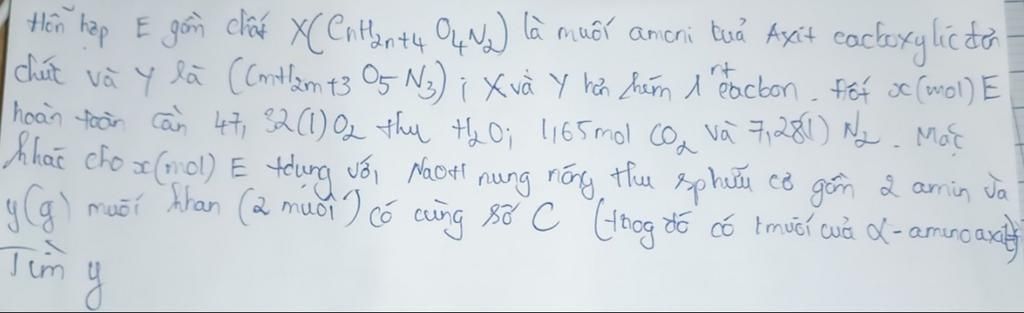 Hỗn hợp E gồm chất X (CnH2n+4 O4N2) là muối amoni của Axit cacboxylic đơn
chức và Y là (CmH2m+3 O5 N3) ; X và Y hơn kém 1 nt cacbon. Đốt x(mol) E
hoàn toàn cần 47,32(l) O2 thu H2O; 1,65 mol CO2 và 7,28(l) N2. Mặc
khác cho x(mol) E tdụng với NaOH nung nóng thu sp hữu cơ gồm 2 amin và
y(g) muối khan (2 muối) có cùng số C (trog đó có 1 muối của α-amino axit)
Tìm y